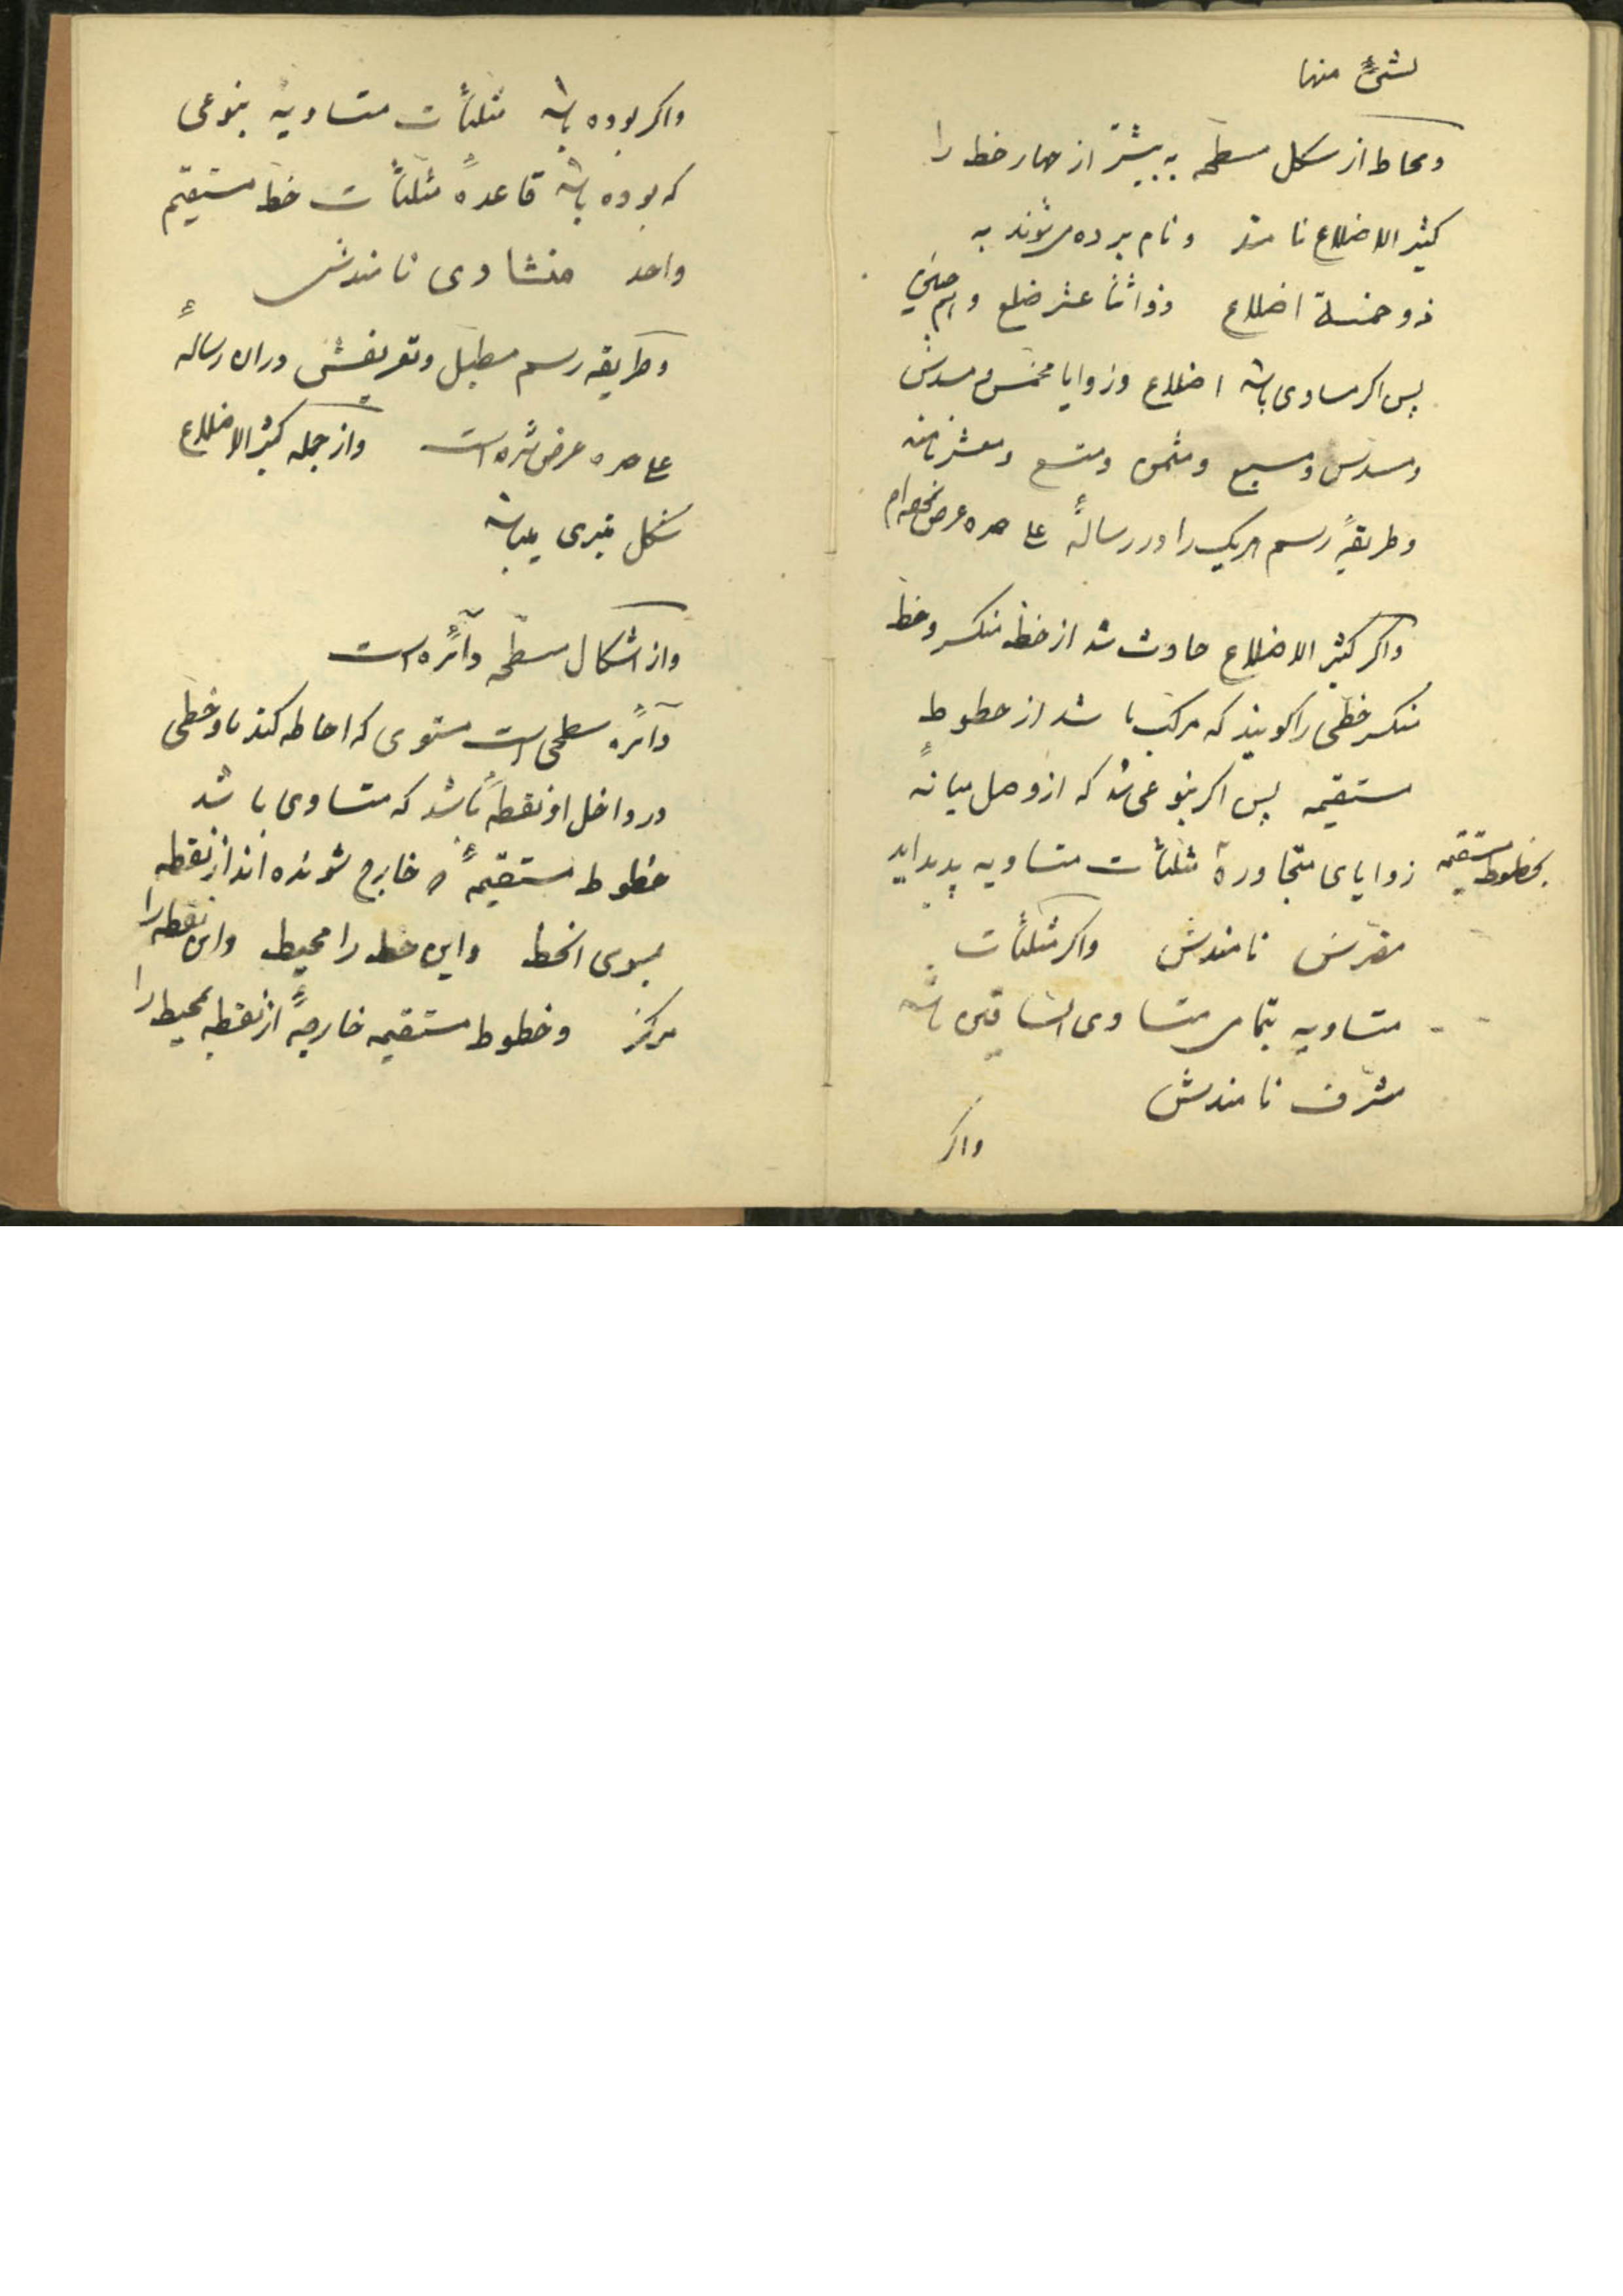 لشئ منها
ومحاط از شکل مسطحه به بیشتر از چهار خط را
کثیر الاضلاع نامند ونام برده میشوند به
ذو خمسة اضلاع وذو اثنا عشر ضلع
پس اکر مساوی باشد اضلاع وزوایا مخمس مسدس
ومسدس ومسبع ومثمن ومتسع ومعشر نامند
وطریقهٔ رسم هریک را در رسالهٔ علی حده عرض
واکر کثیر الاضلاع حادث شد از خط منکسر وخط
منکسر خطی را کویند که مرکب باشد از خطوط
مستقیمه پس اکر بنوعی شد که از وصل میانهٔ
بخطوط مستقیمه زوایای متجاورهٔ مثلثات متساویه پدید اید
مضرس نامندش واکر مثلثات
متساویه بتمامی متساوی الساقین باشد
مشرف نامندش
واکر
واکر بوده باشد مثلثات متساویه بنوعی
که بوده باشد قاعدهٔ مثلثات خط مستقیم
واحد منشاوی نامندش
وطریقه رسم مطبل وتعریفش دران رسالهٔ
علی حده عرض شده است واز جمله کثیر الاضلاع
شکل منبری میباشد
واز اشکال مسطحه دآئره است
دآئره سطحی است مستوی که احاطه کند باو خطی
در داخل او نقطهٔ باشد که متساوی باشد
خطوط مستقیمهٔ خارج شونده اند از نقطه
بسوی انخط واین خط را محیط واین نقطه را
مرکز وخطوط مستقیمه خارجهٔ از نقطه بمحیط را